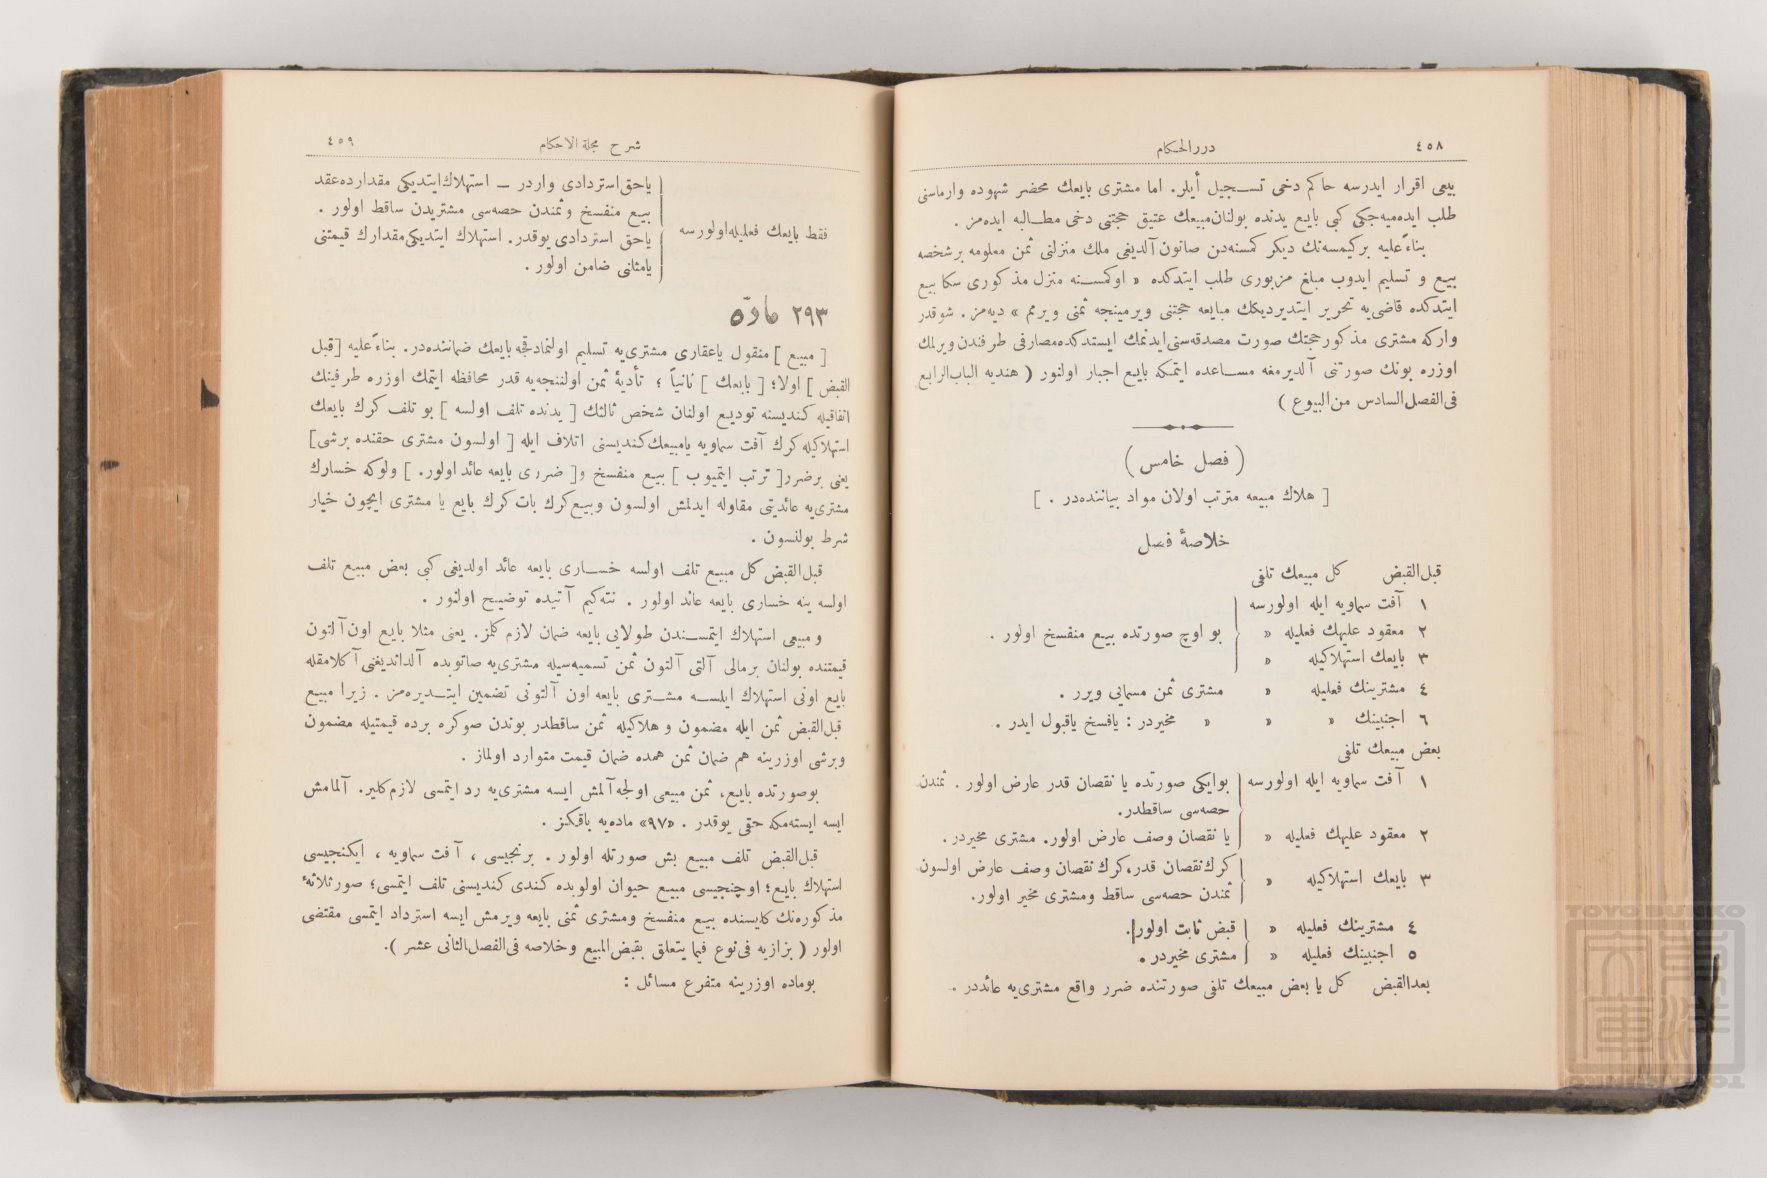 ٤٥٨
دررالحكام
بيعى اقرار ايدرسه حاكم دخى تسجيل أيلر. اما مشترى بايعك محضر شهوده وارماسنى
طلب ايده‌ميه‌جكى كبى بايع يدنده بولنان مبيعك عتيق حجتنى دخى مطالبه ايده‌مز .
بناءً عليه بركيمسه‌نك ديكر كمسنه‌دن صاتون آلديغى ملك منزلنى ثمن معلومه برشخصه
بيع و تسليم ايدوب مبلغ مزبورى طلب ايتدكده « اوكمسنه منزل مذكورى سكا بيع
ايتدكده قاضى‌يه تحرير ايتديرديكك مبايعه حجتنى ويرمينجه ثمنى ويرمم » ديه‌مز . شوقدر
واركه مشترى مذكور حجتك صورت مصدقه‌سنى ايدنمك ايستدكده مصارفى طرفندن ويرلمك
اوزره بونك صورتنى آلديرمغه مساعده ايتمكه بايع اجبار اولنور ( هنديه الباب‌الرابع
فى‌الفصل‌السادس من‌البيوع )
( فصل خامس )
[ هلاك مبيعه مترتب اولان مواد بياننده‌در . ]
خلاصۀ فصل
قبل‌القبض كل مبيعك تلفى
١ آفت سماويه ايله اولورسه
٢ معقود عليهك فعليله » بو اوچ صورتده بيع منفسخ اولور .
٣ بايعك استهلاكيله »
٤ مشترينك فعليله » مشترى ثمن مسمايى ويرر .
٦ اجنبينك » » » مخيردر : يافسخ ياقبول ايدر .
بعض مبيعك تلفى
١ آفت سماويه ايله اولورسه بوايكى صورتده يا نقصان قدر عارض اولور . ثمندن
حصه‌سى ساقطدر.
٢ معقود عليهك فعليله » يا نقصان وصف عارض اولور. مشترى مخيردر.
كرك نقصان قدر، كرك نقصان وصف عارض اولسون
٣ بايعك استهلاكيله »
ثمندن حصه‌سى ساقط ومشترى مخير اولور.
٤ مشترينك فعليله » قبض ثابت اولور.
٥ اجنبينك فعليله » مشترى مخيردر.
بعدالقبض كل يا بعض مبيعك تلفى صورتنده ضرر واقع مشترى‌يه عائددر .
شرح مجلة الاحكام
٤٥٩
ياحق استردادى واردر ــ استهلاك ايتديكى مقدارده عقد
بيع منفسخ وثمندن حصه‌سى مشتريدن ساقط اولور .
فقط بايعك فعليله اولورسه
ياحق استردادى يوقدر. استهلاك ايتديكى مقدارك قيمتنى
يامثلنى ضامن اولور .
٢٩٣ مادّه
[ مبيع ] منقول ياعقارى مشترى‌يه تسليم اولنمادقجه بايعك ضماننده‌در. بناءً عليه [قبل
القبض ] اولا؛ [ بايعك ] ثانياً ؛ تأديۀ ثمن اولننجه‌يه قدر محافظه ايتمك اوزره طرفينك
اتفاقيله كنديسنه توديع اولنان شخص ثالثك [ يدنده تلف اولسه ] بو تلف كرك بايعك
استهلاكيله كرك آفت سماويه يامبيعك كنديسنى اتلاف ايله [ اولسون مشترى حقنده برشى]
يعنى برضرر[ ترتب ايتميوب ] بيع منفسخ و[ ضررى بايعه عائد اولور. ] ولوكه خسارك
مشترى‌يه عائديتى مقاوله ايدلمش اولسون وبيع كرك بات كرك بايع يا مشترى ايچون خيار
شرط بولنسون .
قبل‌القبض كل مبيع تلف اولسه خسارى بايعه عائد اولديغى كبى بعض مبيع تلف
اولسه ينه خسارى بايعه عائد اولور . نته‌كيم آتيده توضيح اولنور .
و مبيعى استهلاك ايتمسندن طولايى بايعه ضمان لازم كلمز. يعنى مثلا بايع اون آلتون
قيمتنده بولنان برمالى آلتى آلتون ثمن تسميه‌سيله مشترى‌يه صاتوبده آلدانديغنى آكلامقله
بايع اونى استهلاك ايلسه مشترى بايعه اون آلتونى تضمين ايتديره‌مز . زيرا مبيع
قبل‌القبض ثمن ايله مضمون و هلاكيله ثمن ساقطدر بوندن صوكره برده قيمتيله مضمون
وبرشى اوزرينه هم ضمان ثمن همده ضمان قيمت متوارد اولماز .
بوصورتده بايع، ثمن مبيعى اولجه آلمش ايسه مشترى‌يه رد ايتمسى لازم كلير. آلمامش
ايسه ايسته‌مكه حقى يوقدر . «٩٧» ماده‌يه باقكز .
قبل‌القبض تلف مبيع بش صورتله اولور . برنجيسى ، آفت سماويه ، ايكنجيسى
استهلاك بايع؛ اوچنجيسى مبيع حيوان اولوبده كندى كنديسنى تلف ايتمسى؛ صور ثلاثۀ
مذكوره‌نك كافه‌سنده بيع منفسخ ومشترى ثمنى بايعه ويرمش ايسه استرداد ايتمسى مقتضى
اولور ( بزازيه فى‌نوع فيما يتعلق بقبض‌المبيع وخلاصه فى‌الفصل‌الثانى عشر ).
بوماده اوزرينه متفرع مسائل :
TOYO BUNKO
東洋文庫